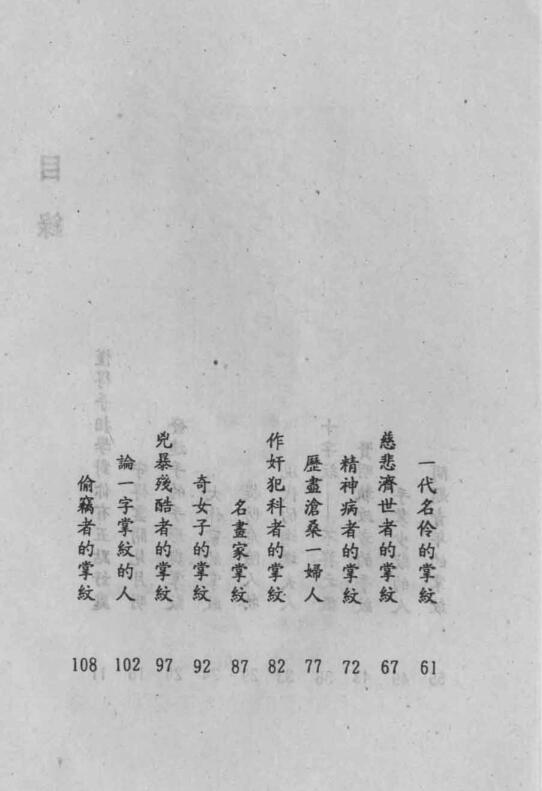 一代名伶的掌紋 61
慈悲濟世者的掌紋 67
精神病者的掌紋 72
歷盡滄桑一婦人 77
作奸犯科者的掌紋 82
名畫家掌紋 87
奇女子的掌紋 92
兇暴殘酷者的掌紋 97
論一字掌紋的人 102
偷竊者的掌紋 108
目錄